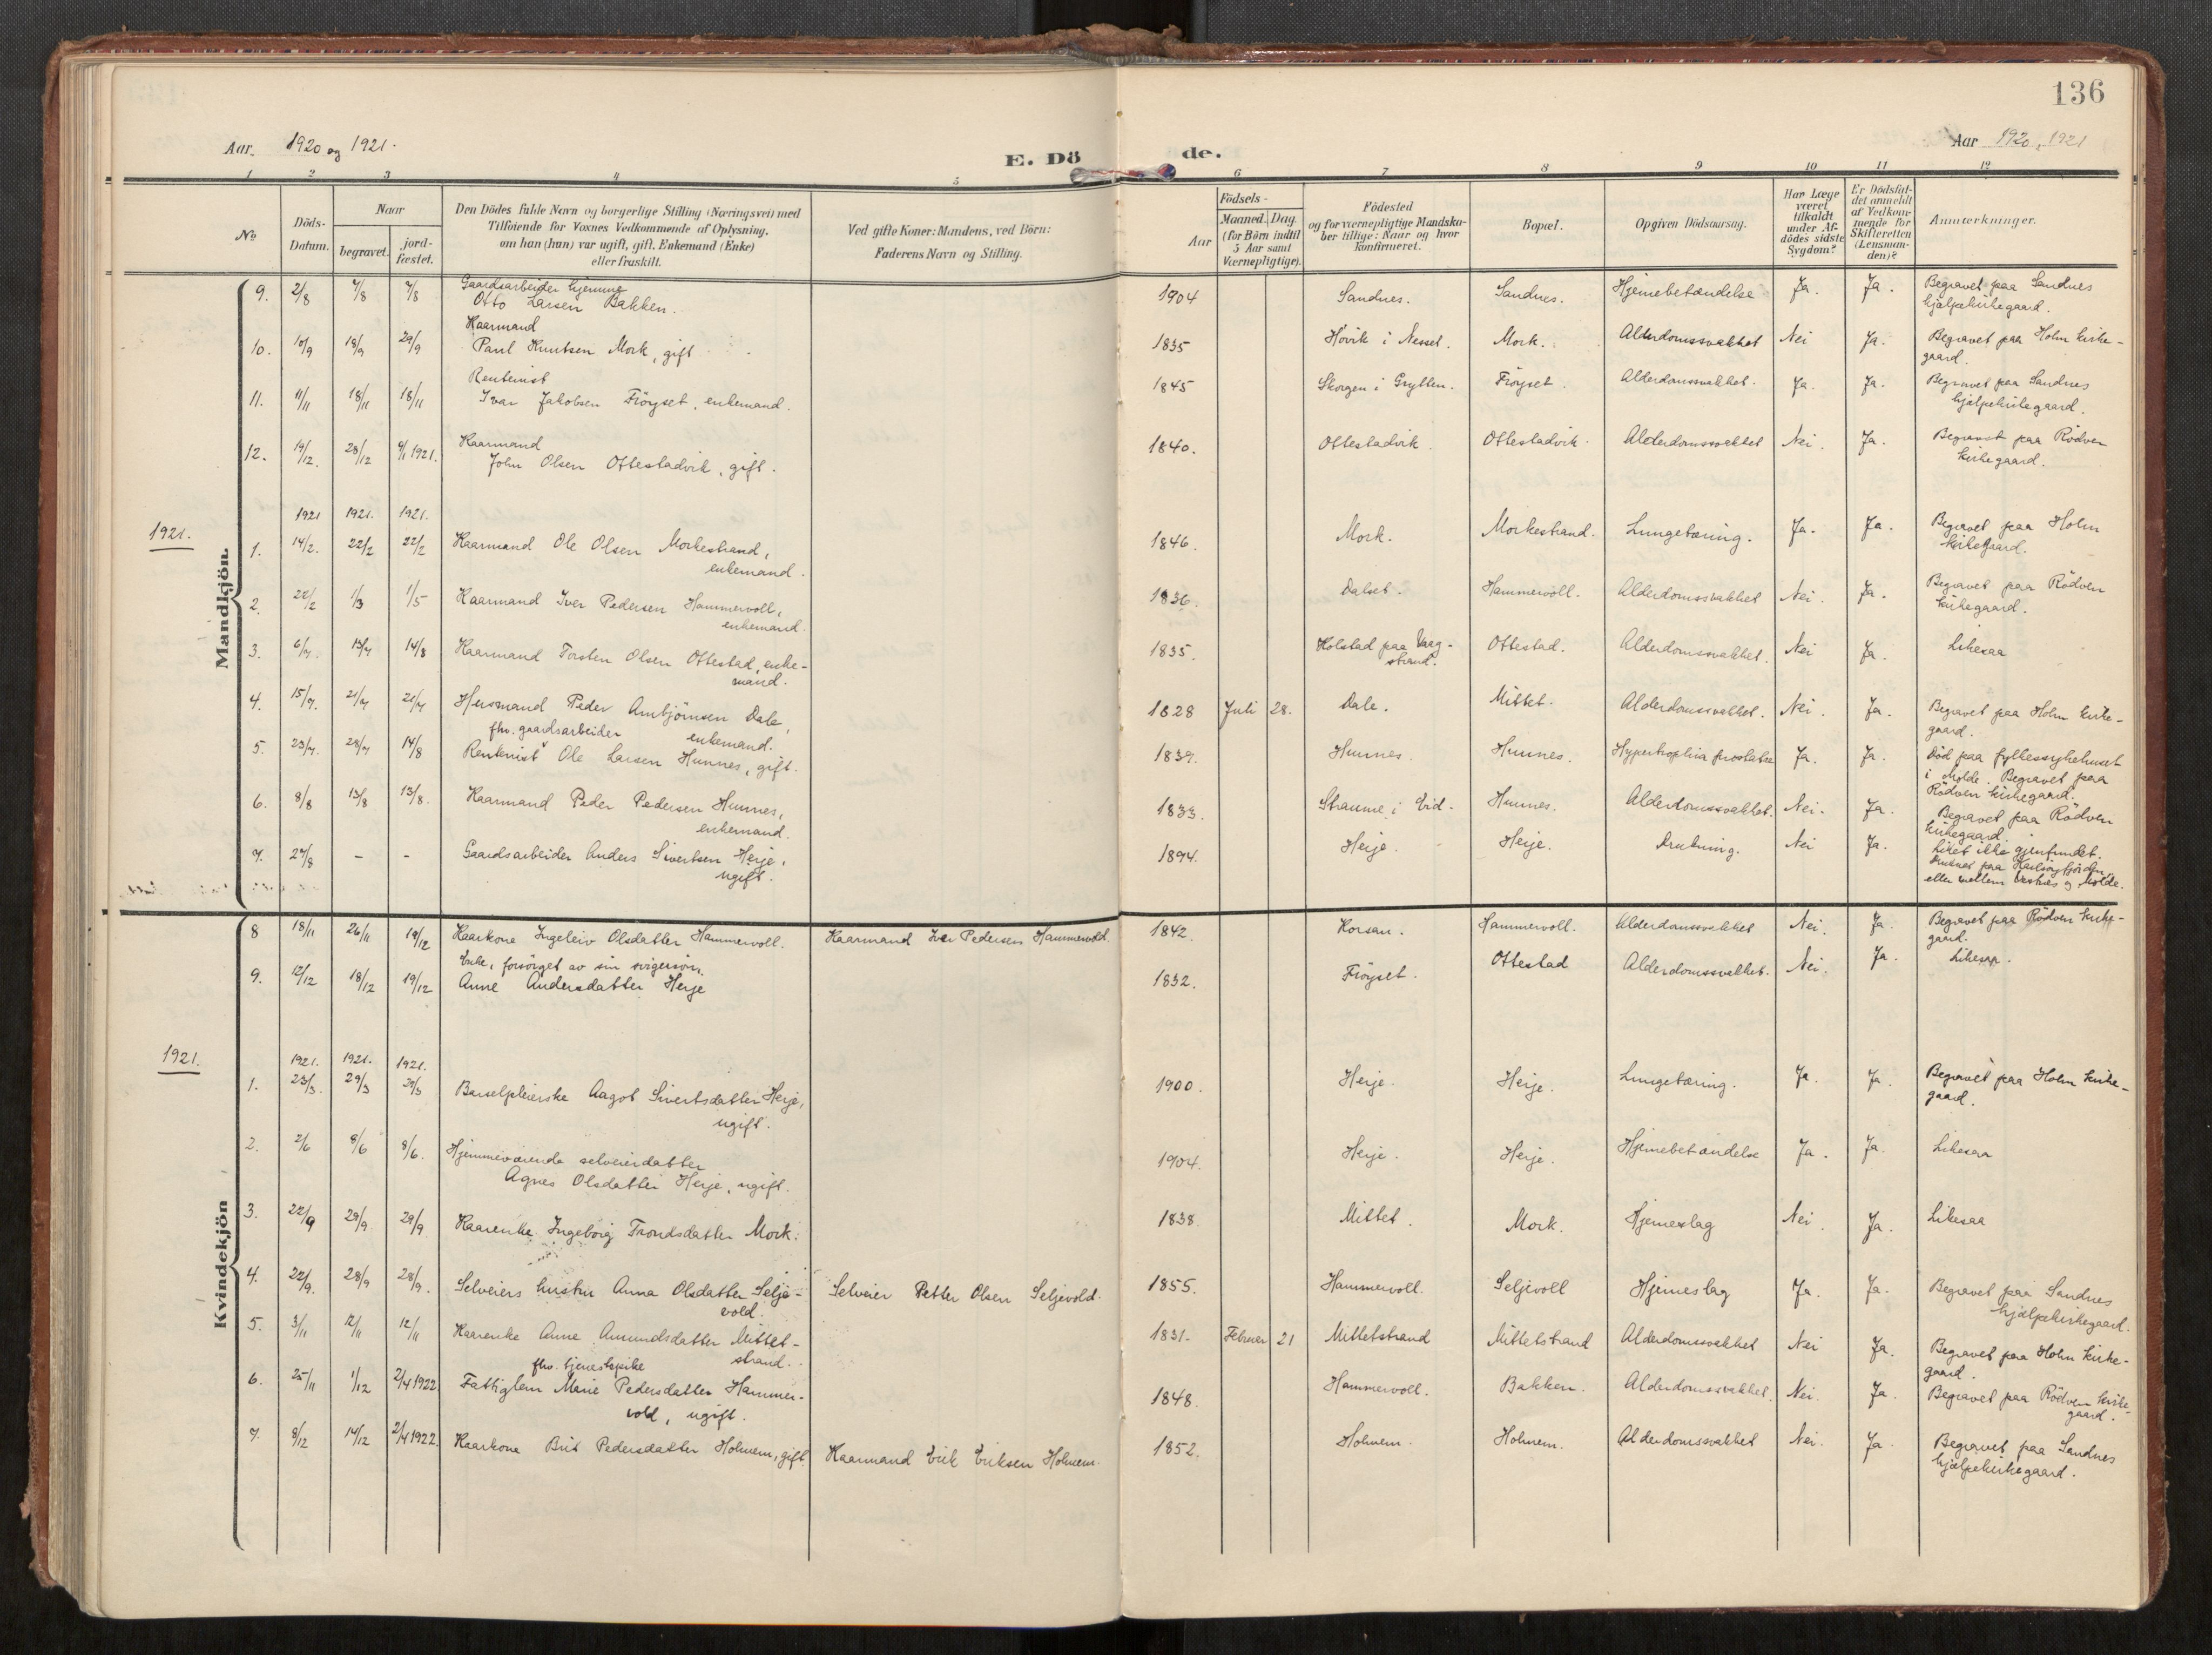 136
Aar 1920 og 1921.
E. Dö
de.
Aar 1920, 1921
1 2 3 4 5 6 7 8 9 10 11 12
No
Döds-Datum.
Naar
begravet.
jordfæstet.
Den Dödes fulde Navn og borgerlige Stilling (Næringsvei) med
Tilföiende for Voxnes Vedkommende af Oplysning,
om han (hun) var ugift, gift, Enkemand (Enke)
eller fraskilt.
Ved gifte Koner: Mandens, ved Börn:
Faderens Navn og Stilling.
Födsels-
Aar
Maaned. Dag.
(for Börn indtil
5 Aar samt
Værnepligtige).
Födested
og for værnepligtige Mandska-
ber tillige: Naar og hvor
Konfirmeret.
Bopæl.
Opgiven Dödsaarsag.
Har Læge
været
tilkaldt
under Af-
dödes sidste
Sygdom?
Er Dödsfal-
det anmeldt
af Vedkom-
mende for
Skifteretten
(Lensman-
den)?
Anmærkninger.
Mandkjön.
9. 2/8 7/8 7/8 Gaardsarbeider hjemme
Otto Larsen Bakken. 1904 Sandnes. Sandnes. Hjernebetændelse Ja. Ja. Begravet paa Sandnes
hjælpekirkegaard.
10. 10/9 18/9 29/9 Kaarmand
Paul Knutsen Mork, gift 1835 Hövik i Nesset. Mork. Alderdomssvakhet Nei Ja. Begravet paa Holm kirke-
gaard.
11. 11/11 18/11 18/11 Rentenist
Ivar Jakobsen Fröyset, enkemand. 1845 Skorgen i Grytten. Fröyset. Alderdomssvakhet. Ja. Ja. Begravet paa Sandnes
hjælpekirkegaard.
12. 19/12. 28/12 9/1 1921. Kaarmand
John Olsen Ottestadvik, gift. 1840. Ottestadvik. Ottestadvik. Alderdomssvakhet Nei. Ja. Begravet paa Rödven
kirkegaard.
1921.
1921 1921. 1921.
1. 14/2. 22/2 22/2 Kaarmand Ole Olsen Morkestrand,
enkemand. 1846. Mork. Morkestrand. Lungetæring. Ja. Ja. Begravet paa Holm
kirkegaard.
2. 22/2 1/3 1/5 Kaarmand Iver Pedersen Hammervoll,
enkemand. 1836. Dalset. Hammervoll. Alderdomssvakhet Nei. Ja. Begravet paa Rödven
kirkegaard.
3. 6/7. 13/7 14/8 Kaarmand Torsten Olsen Ottestad, enke-
mand. 1835. Holstad paa Vaag-
strand. Ottestad. Alderdomssvakhet. Nei Ja. Likesaa
4. 15/7. 21/7 21/7 Husmand Peder Ambjörnsen Dale,
fhv. gaardsarbeider enkemand. 1828 Juli 28. Dale. Mittet. Alderdomssvakhet. Nei. Ja. Begravet paa Holm kirke-
gaard.
5. 23/7. 28/7 14/8 Rentenist Ole Larsen Hunnes, gift. 1839. Hunnes. Hunnes. Hypertrophia prostatæ Ja. Ja. Död paa fylkessykehuset
i Molde. Begravet paa
Rödven kirkegaard.
6. 8/8 13/8 13/8. Kaarmand Peder Pedersen Hunnes,
enkemand. 1833. Straume i Eid. Hunnes. Alderdomssvakhet. Nei. Ja. Begravet paa Rödven
kirkegaard.
7. 27/8 - - Gaardsarbeider Anders Sivertsen Herje,
ugift. 1894. Herje. Herje. Drukning. Nei Ja. Liket ikke gjenfundet.
eller mellem Vestnes og Molde.
Kvindekjön
8 18/11 26/11 19/12 Kaarkone Ingeleiv Olsdatter Hammervoll. Kaarmand Iver Pedersen Hammervold. 1842. Korsan. Hammervoll. Alderdomssvakhet Nei. Ja. Begravet paa Rödven kirke-
gaard.
9. 12/12 18/12 19/12 Enke, forsörget av sin svigersön,
Anne Andersdatter Herje 1832. Fröyset. Ottestad Alderdomssvakhet. Nei. Ja. Likesaa.
1921.
1921. 1921. 1921.
1. 23/3. 29/3 29/3 Barselpleierske Aagot Sivertsdatter Herje,
ugift. 1900. Herje. Herje. Lungetæring. Ja. Ja. Begravet paa Holm kirke-
gaard.
2. 2/6 8/6 8/6. Hjemmeværende selveierdatter
Agnes Olsdatter Herje, ugift. 1904. Herje. Herje. Hjernebetændelse Ja. Ja. Likesaa
3. 22/9 29/9 29/9 Kaarenke Ingeborg Trondsdatter Mork. 1838 Mittet. Mork. Hjerneslag Nei. Ja. Likesaa
4. 22/9. 28/9 28/9. Selveiers hustru Anna Olsdatter Selje-
vold. Selveier Petter Olsen Seljevold. 1855. Hammervoll. Seljevoll Hjerneslag Ja. Ja. Begravet paa Sandnes
hjælpekirkegaard.
5. 3/11 12/11 12/11 Kaarenke Anne Amundsdatter Mittet-
strand. 1831. Februar 21 Mittetstrand Mittetstrand Alderdomssvakhet Nei Ja. Begravet paa Holm kirke-
gaard.
6. 25/11 1/12 2/4 1922 fhv. tjenestepike
Fattiglem Marie Pedersdatter Hammer-
vold, ugift. 1848. Hammervoll. Bakken. Alderdomssvakhet. Nei. Ja. Begravet paa Rödven kirke-
gaard.
7. 8/12 14/12 2/4 1922. Kaarkone Brit Pedersdatter Holmem, gift. Kaarmand Erik Eriksen Holmem. 1852. Holmem. Holmem. Alderdomssvakhet Nei. Ja. Begravet paa Sandnes
hjælpekirkegaard.